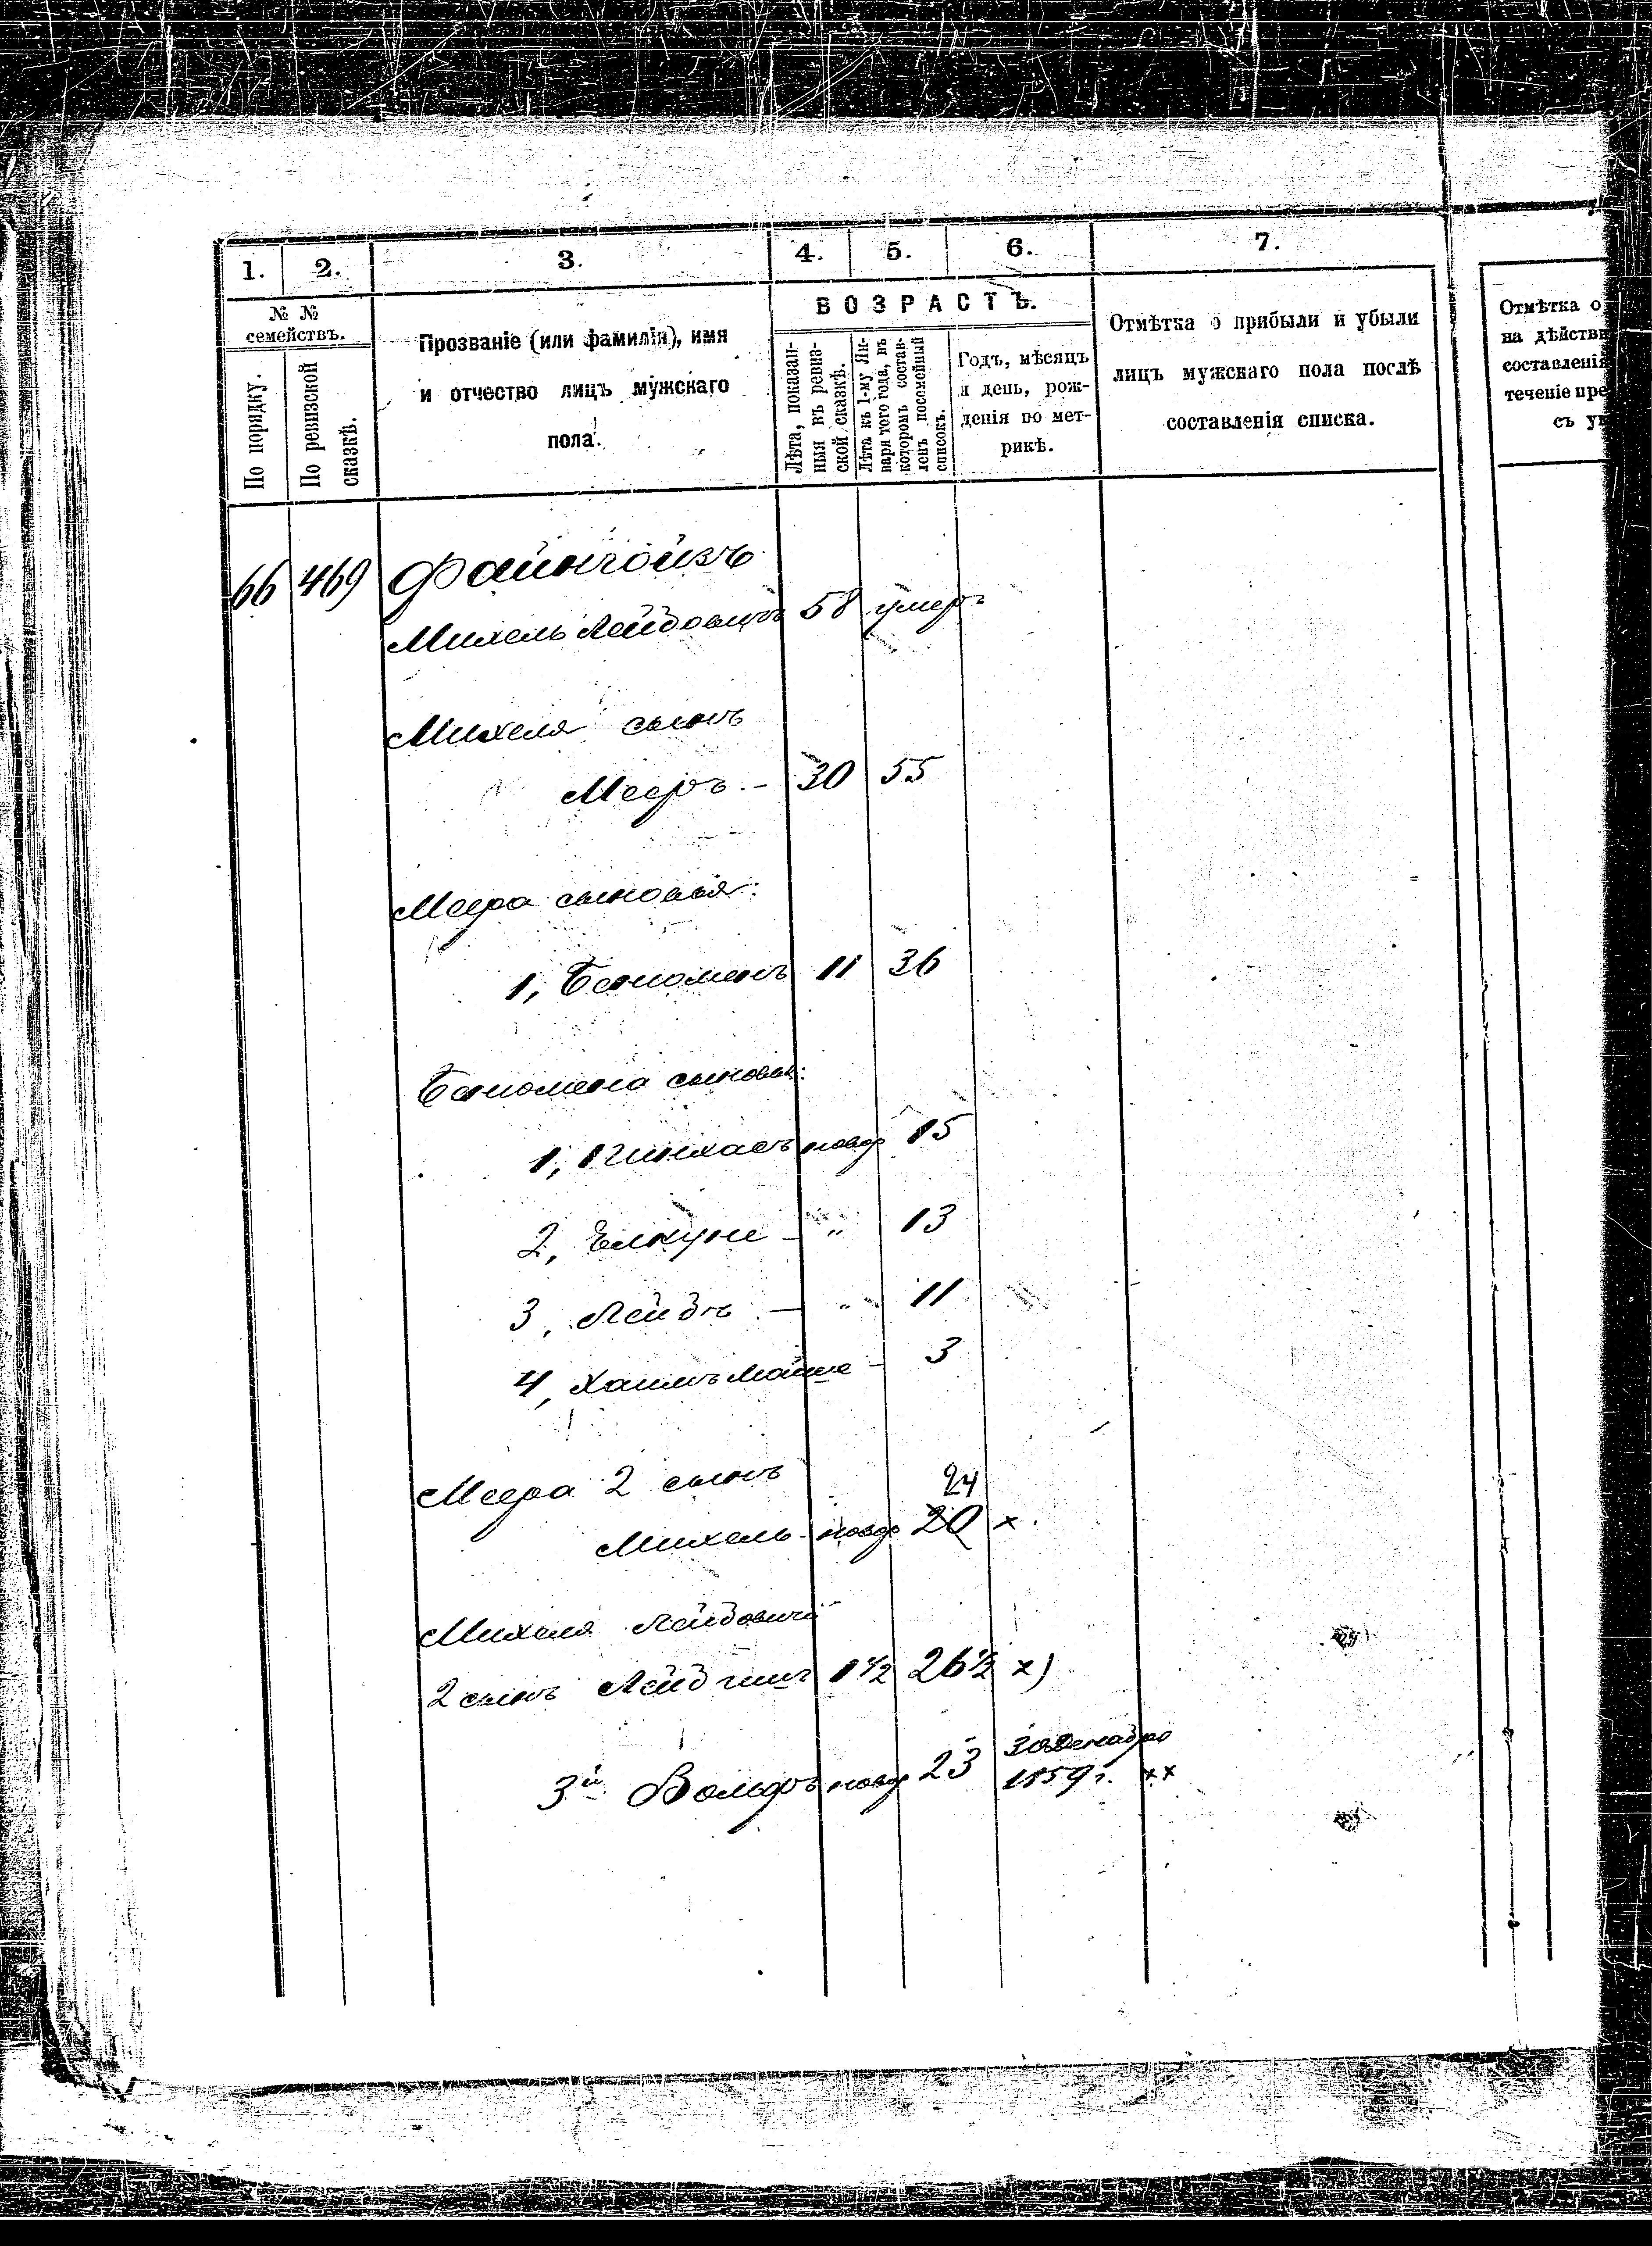 1. 2. 3. 4. 5. 6. 7.
№ №
семействъ.
По порядку.
По ревизской
сказкѣ.
Прозваніе (или фамилія), имя
и отчество лицъ мужскаго
пола.
ВОЗРАСТЪ.
Лѣта, показан-
ныя въ ревиз-
ской сказкѣ.
Лѣта къ 1-му Ян-
варя того года, въ
которомъ состав-
ленъ посемейный
списокъ.
Годъ, мѣсяцъ
и день, рож-
денія по мет-
рикѣ.
Отмѣтка о прибыли и убыли
лицъ мужскаго пола послѣ
составленія списка.
Отмѣтка о
на дѣйстви
составленія
теченіе пре
съ ук
66 469 Файнгойзъ
Михель Лейбовичъ 58 умеръ
Михеля сынъ
Мееръ - 30 55
Меера сыновья:
1, Беніоменъ 11 36
Беніомена сыновья:
1, Пинхасъ новор 15
2, Елкуне - " 13
3, Лейбъ - " 11
4, Хаимъ Мойше - 3
Меера 2 сынъ 24
Михель - новор 20 х
Михеля Лейбовича
2 сынъ Лейб 1 1/2 26 1/2 х)
3й Вольфъ новор 23 30 Декабря
1859 г. хх